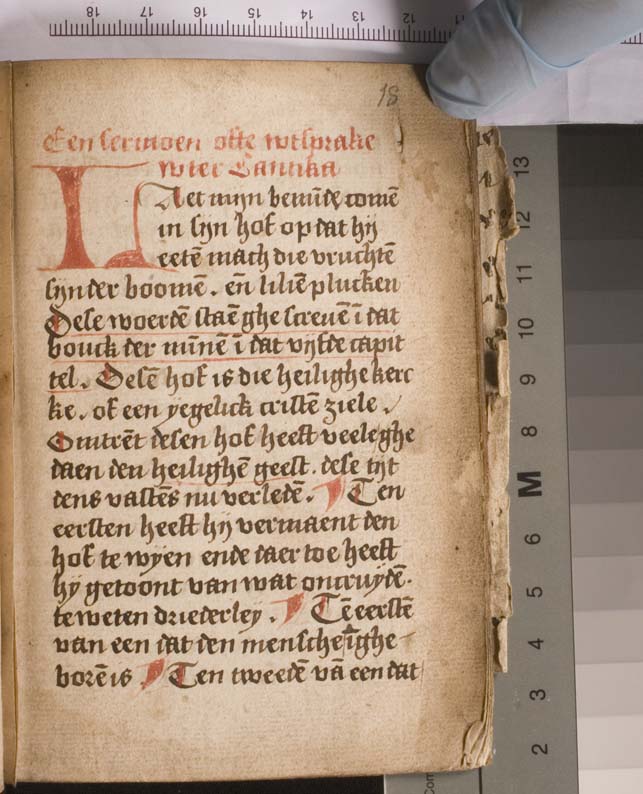 18
Een sermoen ofte wtsprake
wter Cantika
Laet mijn bemīde comē
in sijn hof op dat hij
eetē mach die vruchtē
sijnder boomē. eñ liliē plucken
Dese woerdē staē ghescreuē ī dat
bouck der mīnē ī dat vijfde capit
tel. Desē hof is die heilighe kerc
ke. of een yegelick cristē ziele.
Omtrēt desen hof heeft veele ghe
daen den heilighē geest. dese tijt
dens vastēs nu verledē. Ten
eersten heeft hij vermaent den
hof te wyen ende daer toe heeft
hij getoont van wat oncruydē.
te weten driederley. Tē eerstē
van een dat den mensche īghe
borē is Ten tweedē vā een dat
18 17 16 15 14 13 12 11
13
12
11
10
9
8
M
6
5
4
3
2